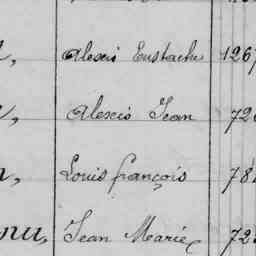 Alexis Eustache 1267
Alexis Jean 72
Louis françois 78
nu, Jean Marie 72